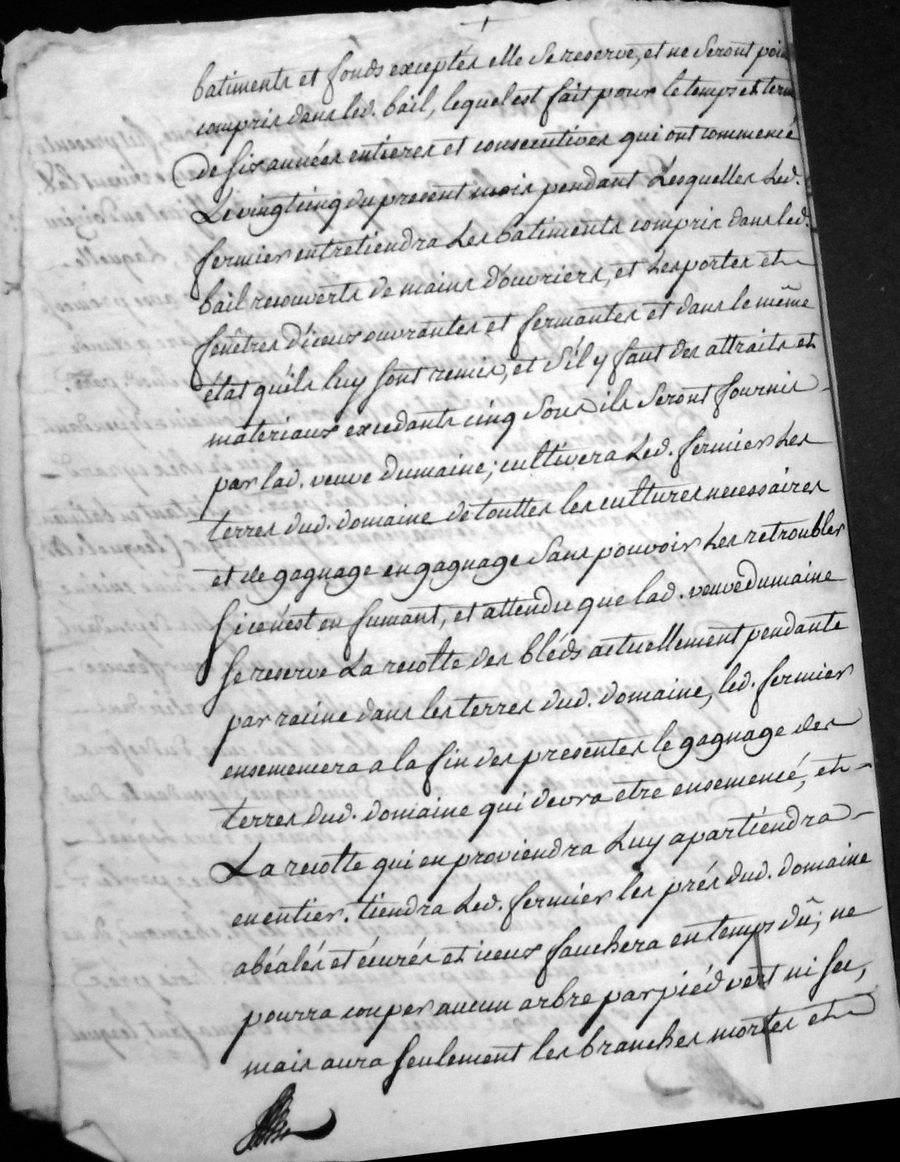 batiments et fonds exceptés elle se reserve, et ne seront poi
compris dans led. bail, lequel est fait pour le temps et term
de six années entieres et consecutives qui ont commencé
Le vingt cinq du present mois pendant Lesquelles Led.
fermier entretiendra Les batiments compris dans led.
bail recouverts de mains d'ouvriers, et Les portes et
fenêtres d'iceux ouvrantes et fermantes et dans le même
état qu'ils luy sont remis, et s'il y faut des attraits et
materiaux excedants cinq sous ils seront fournis
par lad. veuve Dumaine; cultivera Led. fermier Les
terres dud. domaine de touttes les cultures necessaires
et de gagnage en gagnage sans pouvoir Les retroubler
si ce n'est en fumant, et attendu que lad. veuve Dumaine
se reserve La recolte des bléds actuellement pendante
par racine dans les terres dud. domaine, led. fermier
ensemencera a la fin des presentes le gagnage des
terres dud. domaine qui devra etre ensemencé, et
La recolte qui en proviendra Luy apartiendra
en entier. tiendra Led. fermier les prés dud. domaine
abéalés et écurés et iceux fauchera en temps dû; ne
pourra couper aucun arbre par piéd vert ni sec,
mais aura seulement les branches mortes et